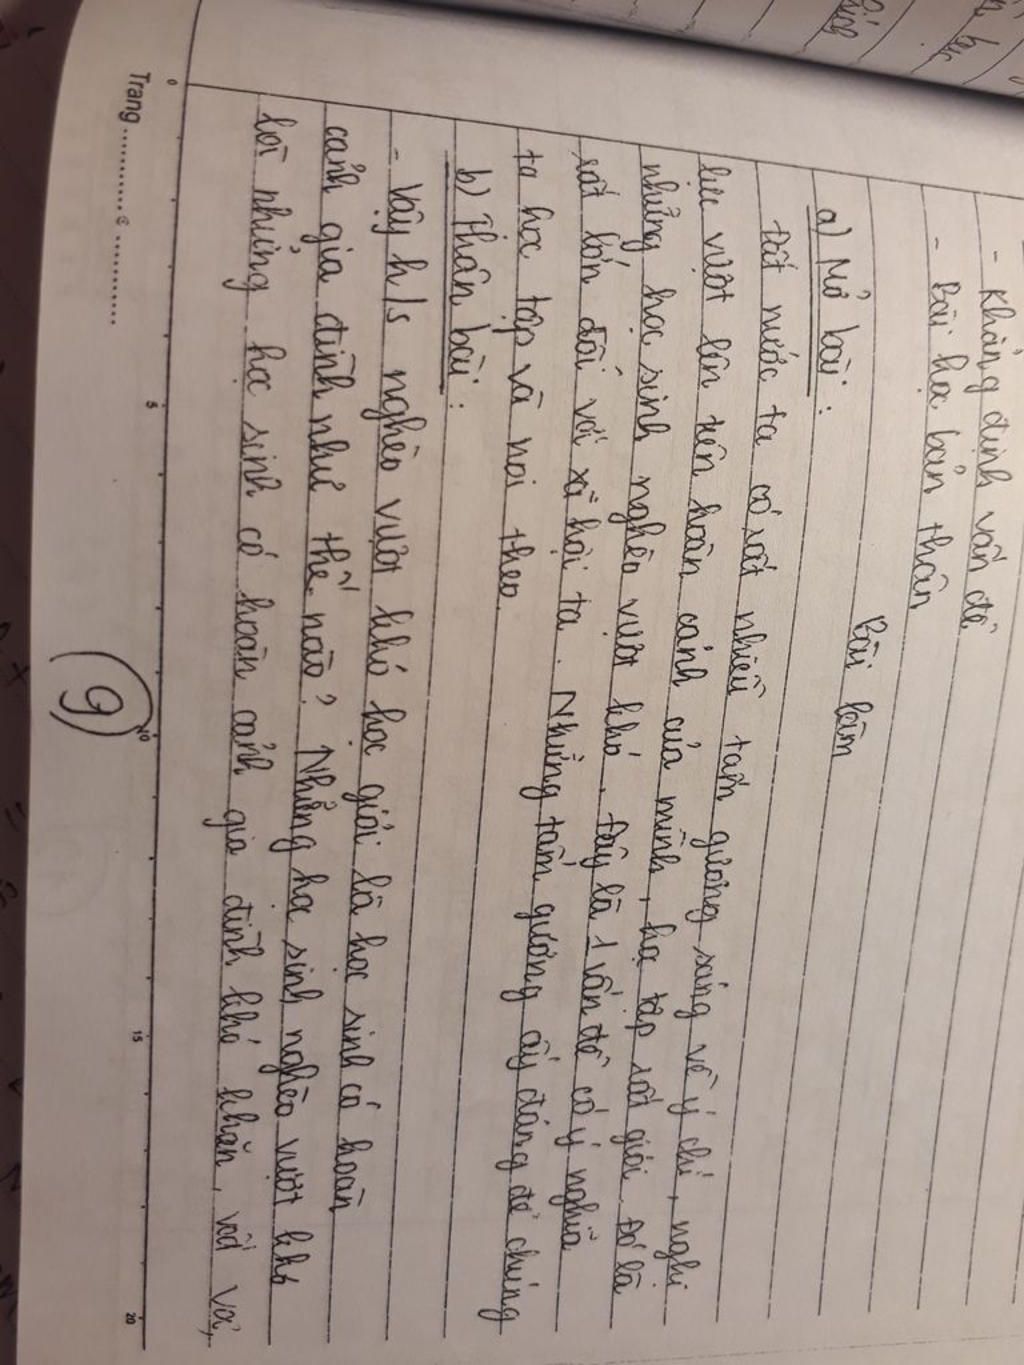 - Khẳng định vấn đề
- Bài học bản thân
Bài làm
a) Mở bài:
Đất nước ta có rất nhiều tấm gương sáng về ý chí, nghị
lực vượt lên trên hoàn cảnh của mình, học tập rất giỏi. Đó là
những học sinh nghèo vượt khó. Đây là 1 vấn đề có ý nghĩa
rất lớn đối với xã hội ta. Những tấm gương ấy đáng để chúng
ta học tập và noi theo.
b) Thân bài:
- Vậy h/s nghèo vượt khó học giỏi là học sinh có hoàn
cảnh gia đình như thế nào? Những học sinh nghèo vượt khó
là những học sinh có hoàn cảnh gia đình khó khăn, vất vả,
Trang
0 5 10 15 20
9